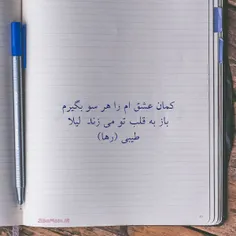 کمان عشق ام را هر سو بگیرم
باز به قلب تو می زند لیلا
طیبی (رها)